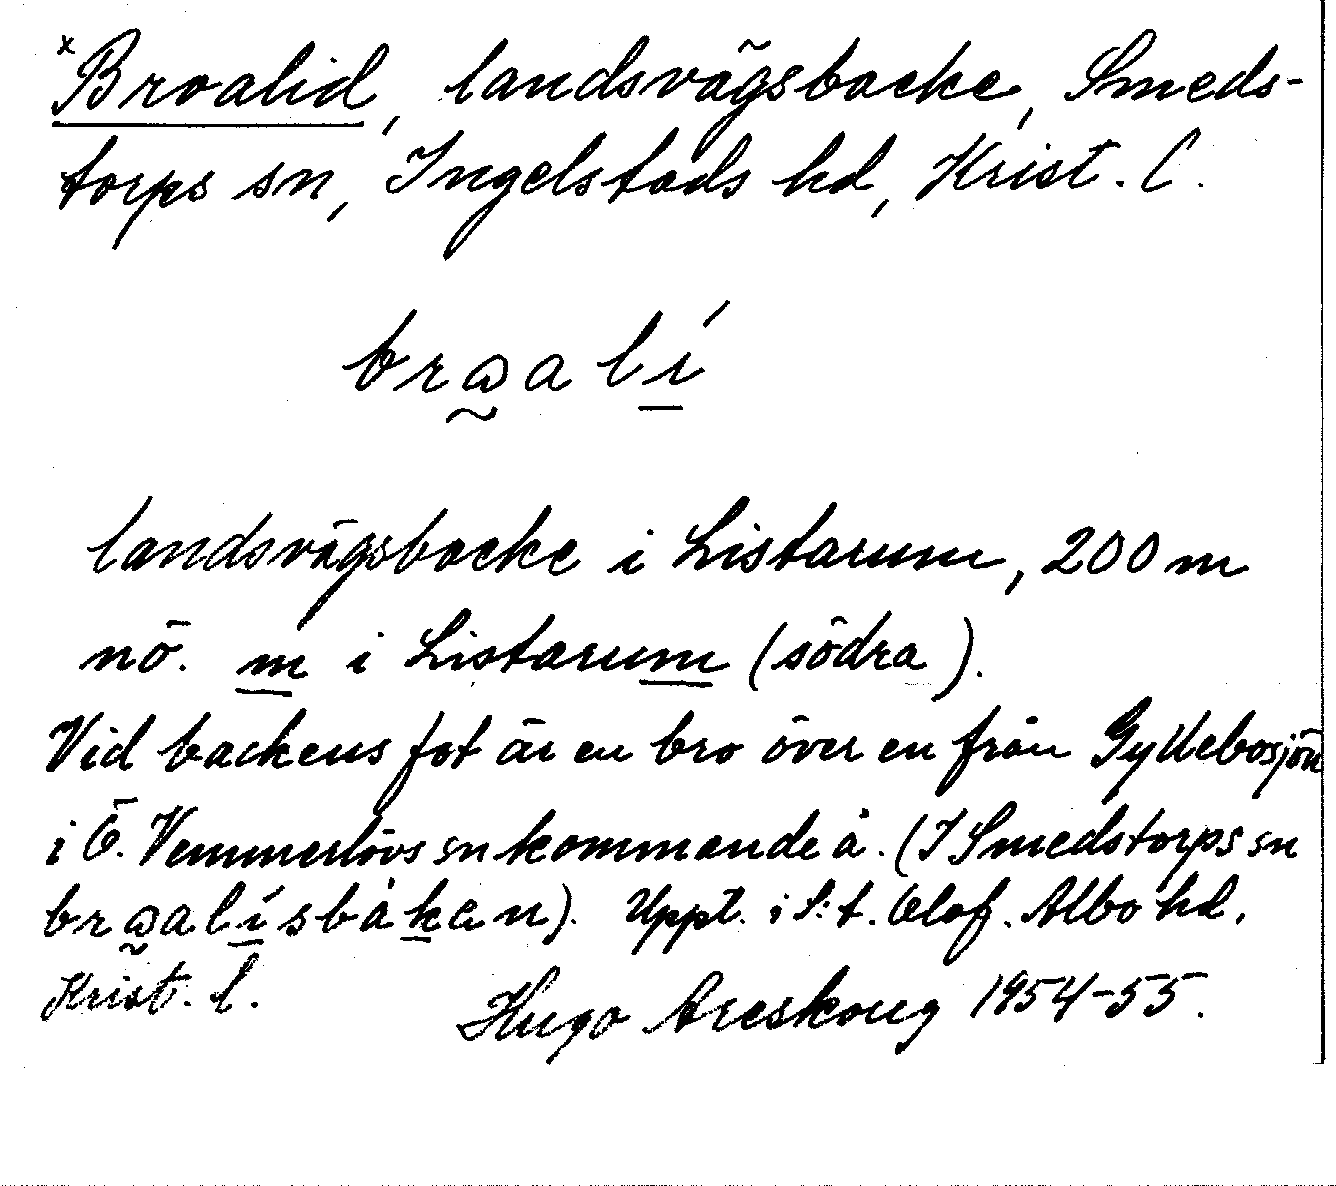 x Broalid, landsvägsbacke, Smeds-
torps sn, Ingelstads hd, Krist. l.
bra̰alí̱
landsvägsbacke i Listarum, 200 m
nö. m i Listarum (södra).
Vid backens fot är en bro över en från Gyllebosjön
i Ö. Vemmerlövs sn kommande å. (I Smedstorps sn
bra̰alí̱sbàḵan). Uppt. i S:t. Olof. Albo hd,
Krist. l.
Hugo Areskoug 1954-55.